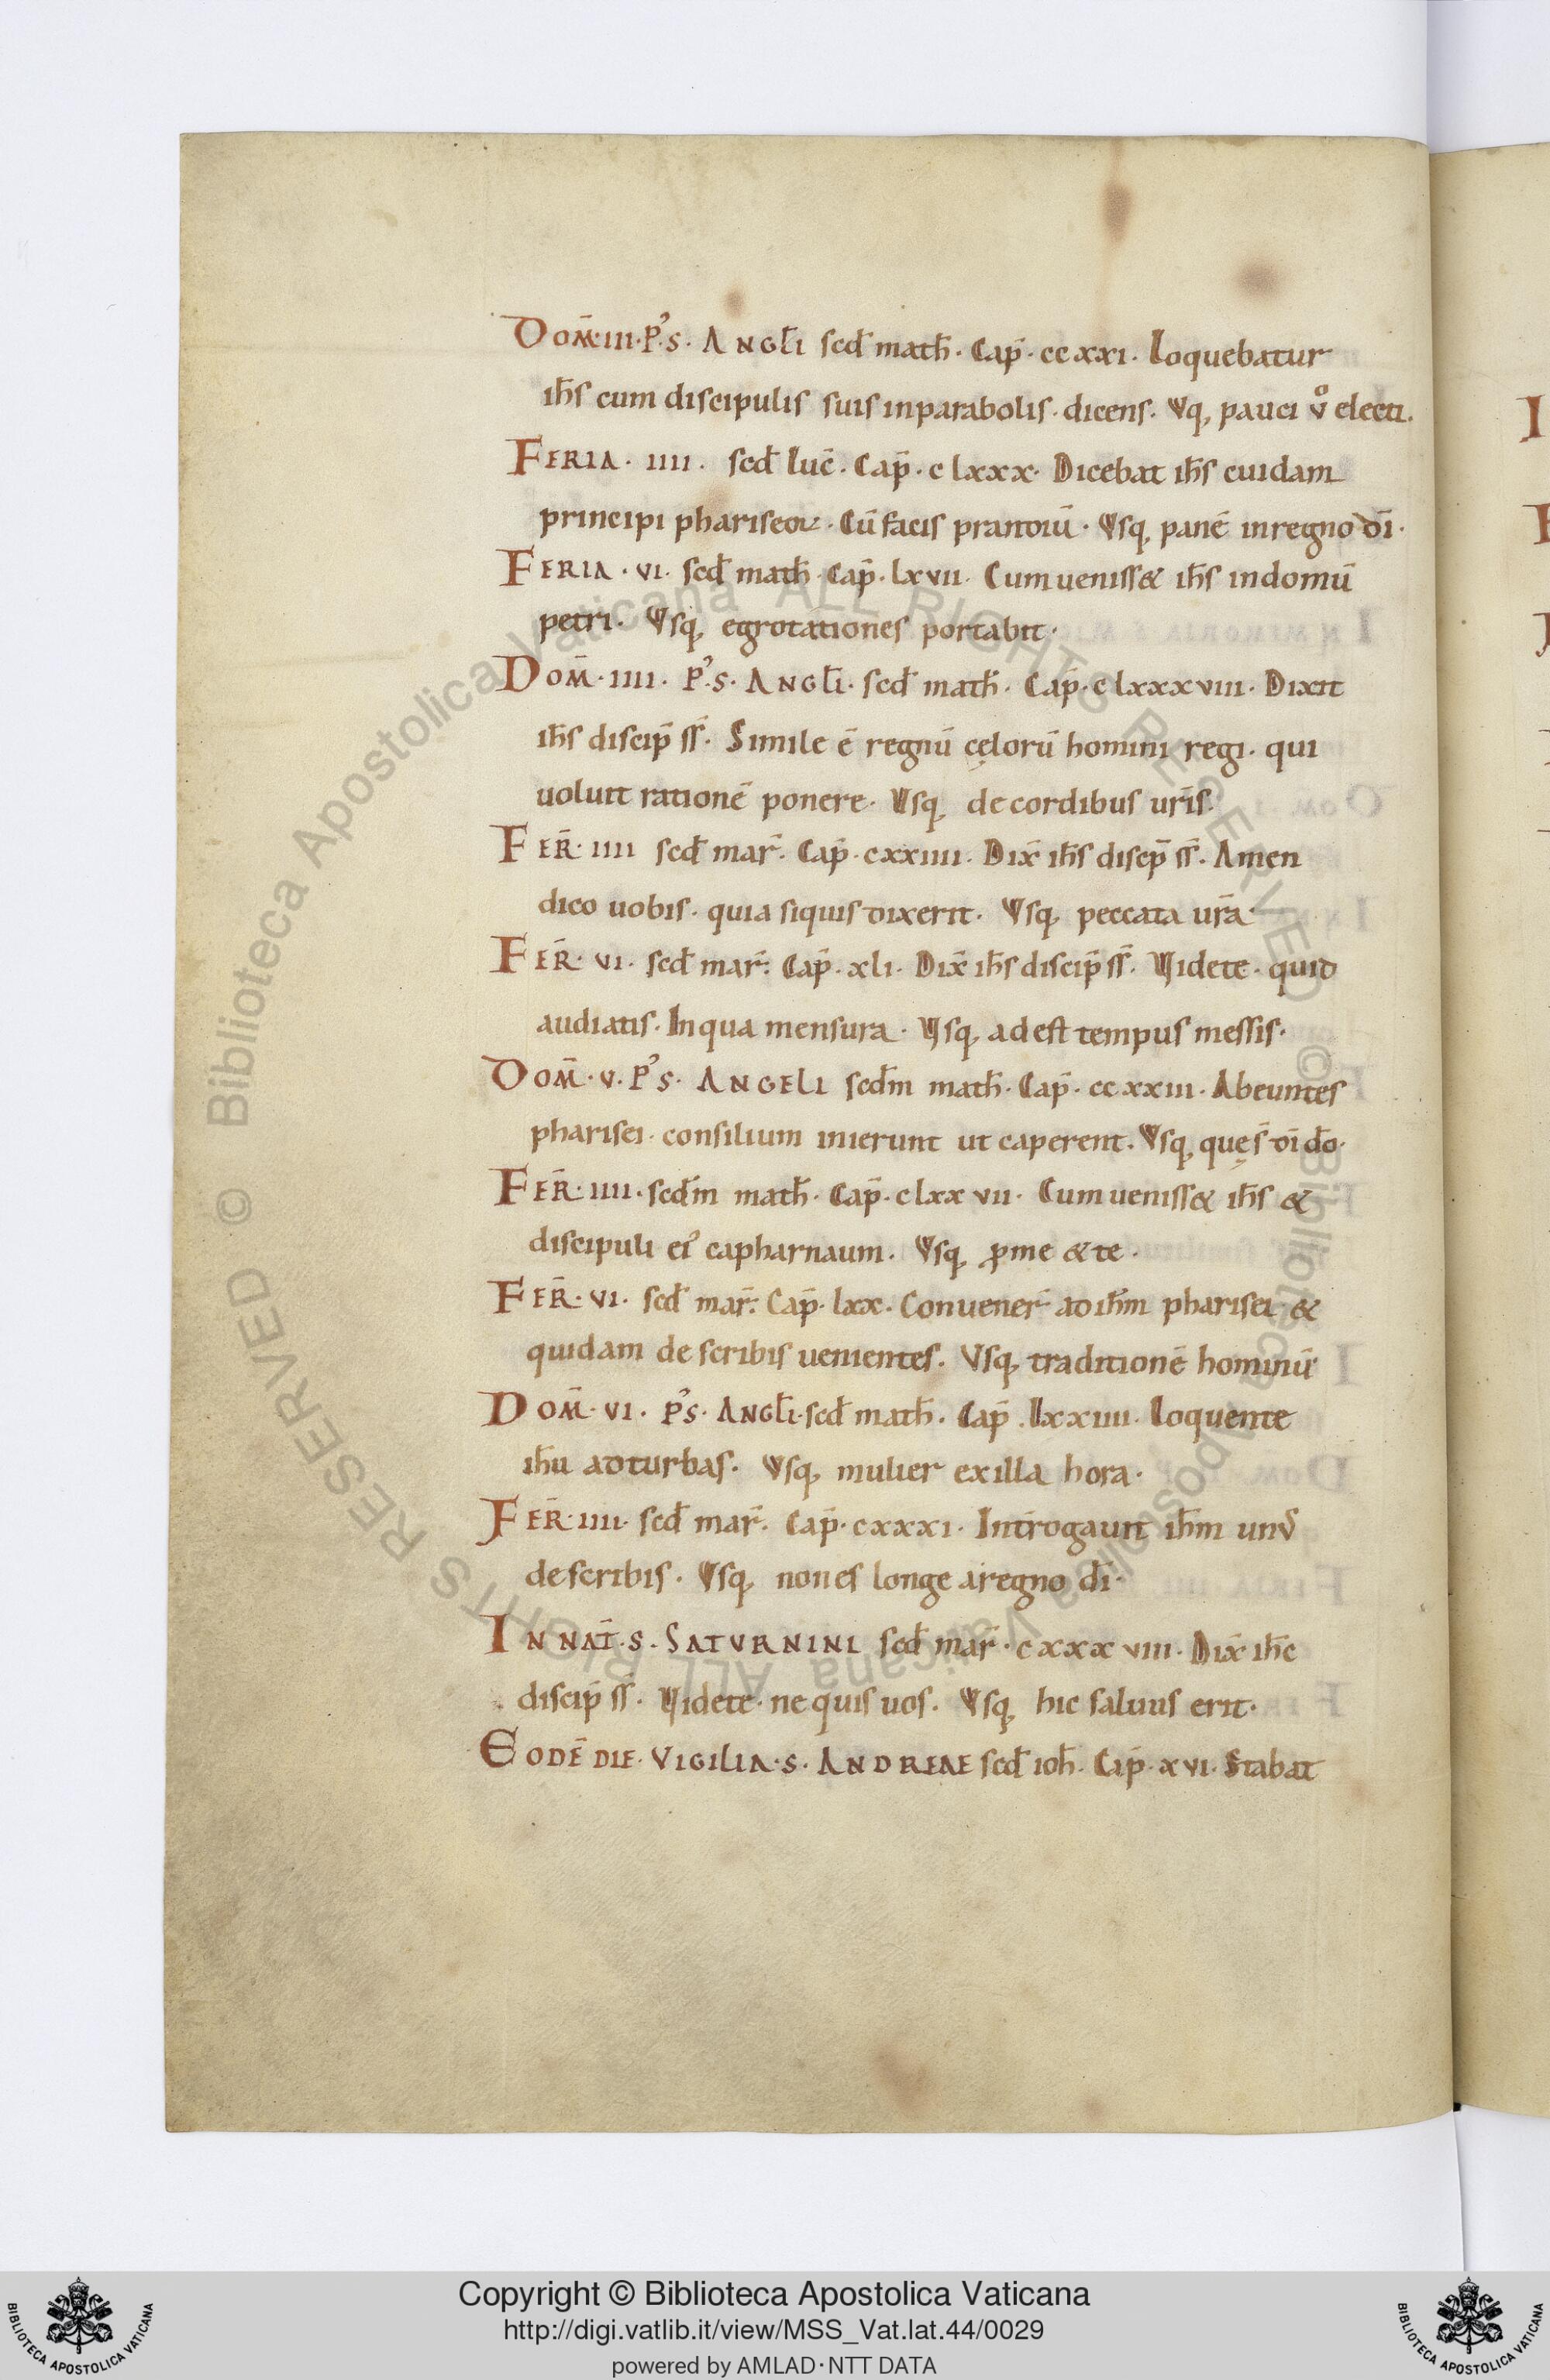 Dom̄·iii·P᾽·s· Angl̄i scđ math̄· Cap̄· ccxxi· Loquebatur
ih̄s cum discipulis suis inparabolis· dicens· Vsq, pauci v̊ electi·
Feria· iiii· scđ luc̄· Cap̄· clxxx· Dicebat ih̄s cuidam
principi phariseoꝝ· Cū facis prandiū· Vsq, panē inregno dī·
Feria· vi· scđ math̄· Cap̄· lxvii· Cumueniss& ih̄s indomū
petri· Vsq, egrotationes portabit·
Dom̄· iiii· P᾽·s· Angl̄i· scđ math̄· Cap̄· clxxxviii· Dixit
ih̄s discip̄ sš· Simile ē regnū cęlorū homini regi· qui
uoluit rationē ponere· Vsq, decordibus ur̄is·
Fer̄· iiii scđ mar̄· Cap̄· cxxiiii· Dix̄ ih̄s discp̄ sš· Amen
dico uobis· quia siquis dixerit· Vsq, peccata ur̄a·
Fer̄· vi· scđ mar̄· Cap̄· xli· Dix̄ ih̄s discip̄ sš· Videte· quid
audiatis· Inqua mensura· Vsq, adest tempus messis·
Dom̄· v· P᾽·s· Angeli scđm math̄· Cap̄· ccxxiii· Abeuntes
pharisei· consilium inierunt ut caperent· Vsq, quę s̄ dī dō·
Fer̄· iiii· scđm math̄· Cap̄· clxxvii· Cumueniss& ih̄s &
discipuli ei᾽ capharnaum· Vsq, ꝓme &te·
Fer̄· vi· scđ mar̄· Cap̄· lxx· Conuener̄ adih̄m pharisei &
quidam describis uenientes· Vsq, traditionē hominū
Dom̄· vi· P᾽s· Angl̄i· scđ math̄· Cap̄· lxxiiii· Loquente
ih̄u adturbas· Vsq, mulier exilla hora·
Fer̄· iiii· scđ mar̄· Cap̄· cxxxi· Int̄rogauit ih̄m un᾽
describis· Vsq, nones longe aregno dī·
In nat̄· s· Saturnini scđ mar̄· cxxxviii· Dix̄ ih̄c
discip̄ sš· Videte· nequis uos· Vsq, hic saluus erit·
Eodē die· Vigilia· s· Andreae scđ ioh̄· Cap̄· xvi· Stabat
© Biblioteca Apostolica Vaticana ALL RIGHTS RESERVED © Biblioteca Apostolica Vaticana ALL RIGHTS RESERVED
Copyright © Biblioteca Apostolica Vaticana
http://digi.vatlib.it/view/MSS_Vat.lat.44/0029
powered by AMLAD·NTT DATA
BIBLIOTECA APOSTOLICA VATICANA
BIBLIOTECA APOSTOLICA VATICANA